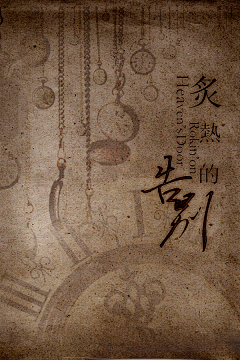 炙熱的
告別
Rokin'on
Heaven'sDoor